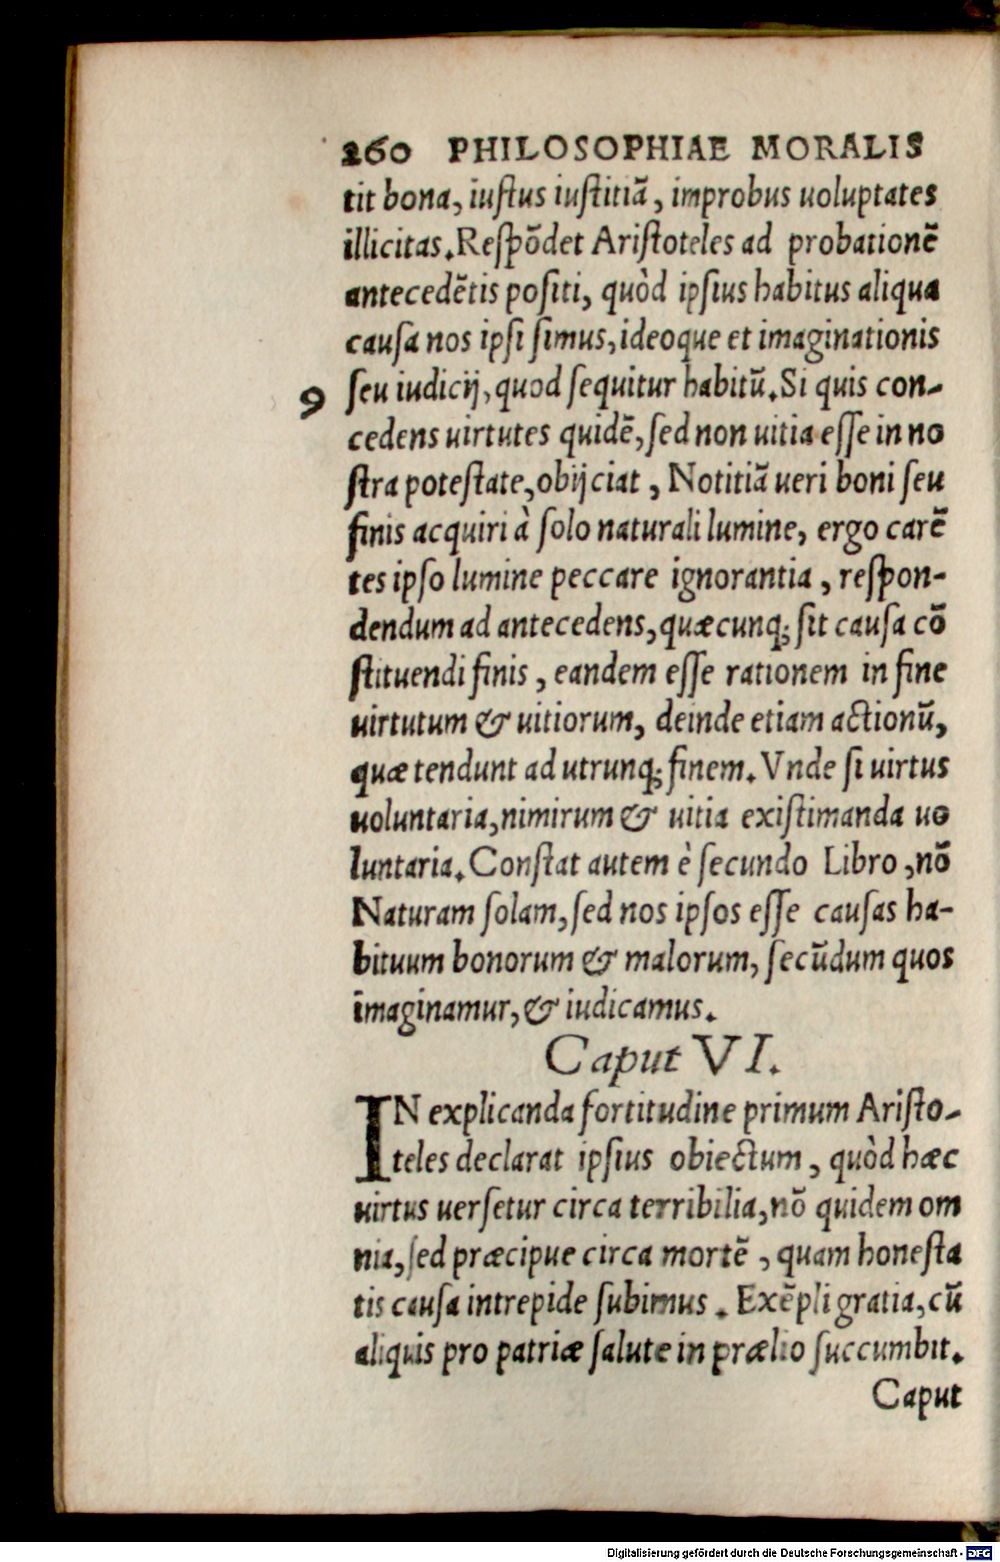 260 PHILOSOPHIAE MORALIS
tit bona, iuſtus iuſtitiā, improbus uoluptates
illicitas. Reſpōdet Ariſtoteles ad probationē
antecedētis poſiti, quòd ipſius habitus aliqua
cauſa nos ipſi ſimus, ideoque et imaginationis
9 ſeu iudicij, quod ſequitur habitū. Si quis con-
cedens uirtutes quidē, ſed non uitia eſſe in no
ſtra poteſtate, obijciat, Notitiā ueri boni ſeu
finis acquiri à ſolo naturali lumine, ergo carē
tes ipſo lumine peccare ignorantia, reſpon-
dendum ad antecedens, quæcunq; ſit cauſa cō
ſtituendi finis, eandem eſſe rationem in fine
uirtutum & uitiorum, deinde etiam actionū,
quæ tendunt ad utrunq; finem. Vnde ſi uirtus
uoluntaria, nimirum & uitia exiſtimanda uo
luntaria. Conſtat autem è ſecundo Libro, nō
Naturam ſolam, ſed nos ipſos eſſe cauſas ha-
bituum bonorum & malorum, ſecūdum quos
imaginamur, & iudicamus.
Caput VI.
IN explicanda fortitudine primum Ariſto-
teles declarat ipſius obiectum, quòd hæc
uirtus uerſetur circa terribilia, nō quidem om
nia, ſed præcipue circa mortē, quam honeſta
tis cauſa intrepide ſubimus. Exēpli gratia, cū
aliquis pro patriæ ſalute in prælio ſuccumbit.
Caput
Digitalisierung gefördert durch die Deutsche Forschungsgemeinschaft - DFG